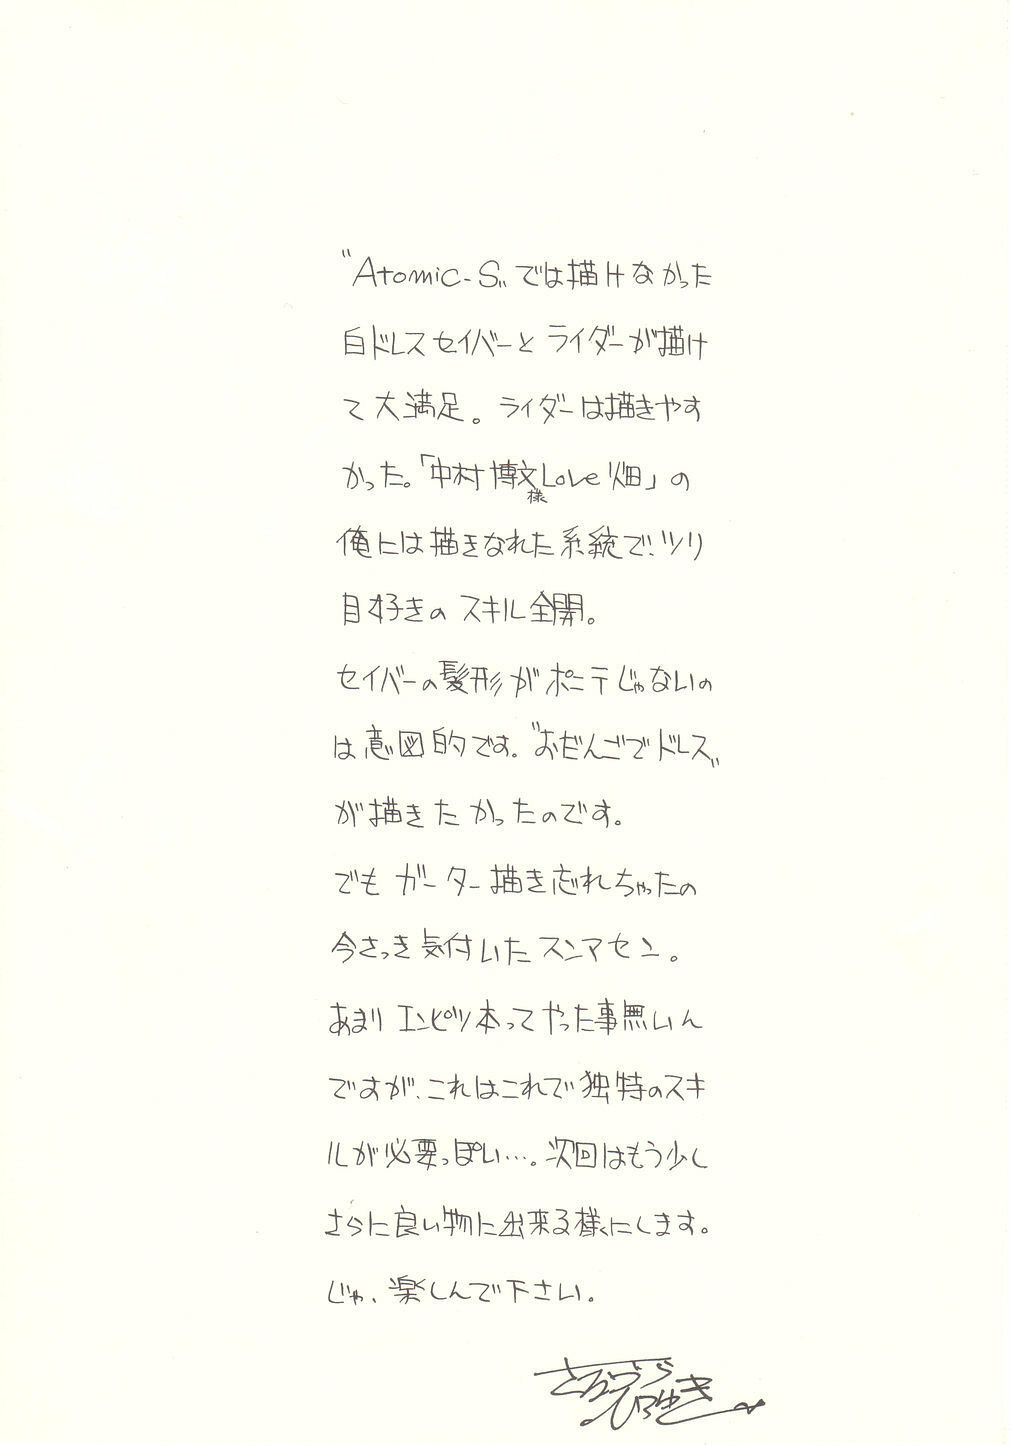 "Atomic-S"では描けなかった
白ドレスセイバーとライダーが描け
て大満足。ライダーは描きやす
かった。「中村博文Love畑」の
様
俺には描きなれた系統で、ツリ
目好きのスキル全開。
セイバーの髪形がポニテじゃないの
は意図的です。"おだんごでドレス"
が描きたかったのです。
でもガーター描き忘れちゃったの
今さっき気付いたスンマセン。
あまりエンピツ本ってやった事無いん
ですが、これはこれで独特のスキ
ルが必要っぽい…。次回はもう少し
さらに良い物に出来る様にします。
じゃ、楽しんで下さい。
ひろゆき